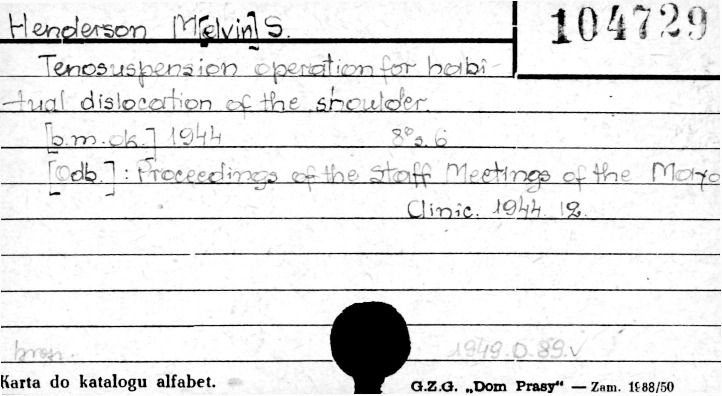 Henderson M[elvin] S.
104729
Tenosuspension operation for habi-
tual dislocation of the shoulder.
[b.m.ok.] 1944 8° s. 6
[Odb.]: Proceedings of the Staff Meetings of the Mayo
Clinic. 1944. 12.
1949.D.89.V
Karta do katalogu alfabet.
G.Z.G. „Dom Prasy“ — Zam. 1688/50